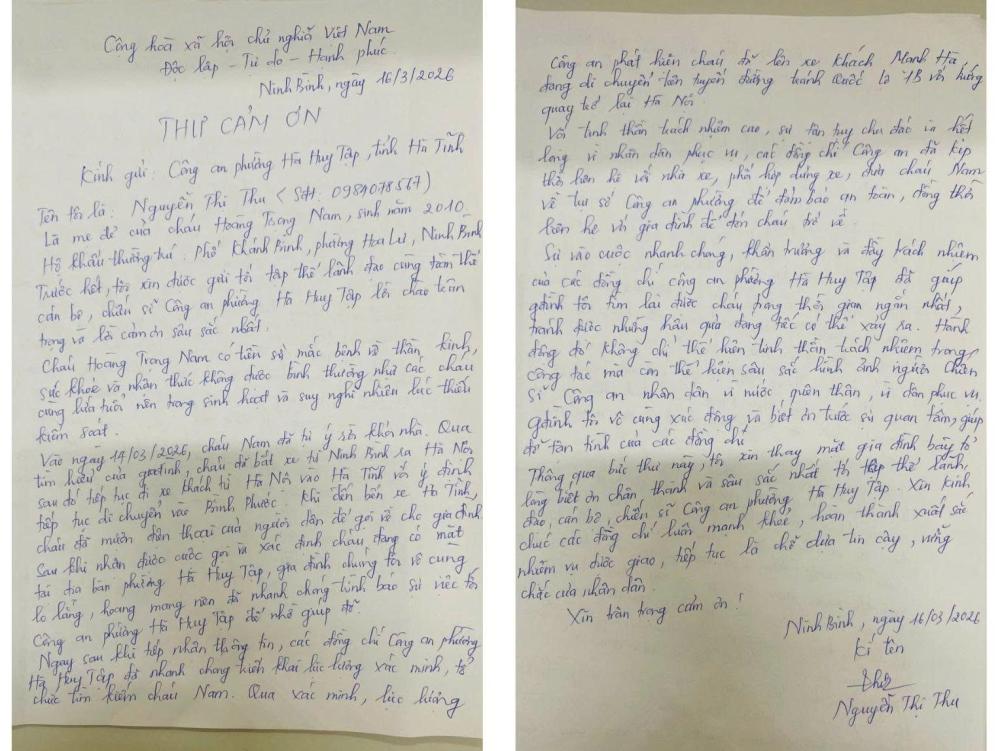 Công hoà xã hội chủ nghĩa Việt Nam
Độc lập - Tự do - Hạnh phúc.
Ninh Bình, ngày 16/3/2026
THƯ CẢM ƠN
Kính gửi: Công an phường Hà Huy Tập, tỉnh Hà Tĩnh
Tên tôi là: Nguyễn Thị Thu (SĐT: 0984078567)
Là mẹ đẻ của cháu Hoàng Trọng Nam, sinh năm 2010.
Hộ khẩu thường trú: Phố Khánh Bình, phường Hoa Lư, Ninh Bình
Trước hết, tôi xin được gửi tới tập thể lãnh đạo cùng toàn thể
cán bộ, chiến sĩ Công an phường Hà Huy Tập lời chào trân
trọng và lời cảm ơn sâu sắc nhất.
Cháu Hoàng Trọng Nam có tiền sử mắc bệnh về thần kinh,
sức khoẻ và nhận thức không được bình thường như các cháu
cùng lứa tuổi nên trong sinh hoạt và suy nghĩ nhiều lúc thiếu
kiểm soát.
Vào ngày 14/03/2026, cháu Nam đã tự ý rời khỏi nhà. Qua
tìm hiểu của gia đình, cháu đã bắt xe từ Ninh Bình ra Hà Nội,
sau đó tiếp tục đi xe khách từ Hà Nội vào Hà Tĩnh với ý định
tiếp tục di chuyển vào Bình Phước. Khi đến bến xe Hà Tĩnh,
cháu đã mượn điện thoại của người dân để gọi về cho gia đình.
Sau khi nhận được cuộc gọi và xác định cháu đang có mặt
tại địa bàn phường Hà Huy Tập, gia đình chúng tôi vô cùng
lo lắng, hoang mang nên đã nhanh chóng trình báo sự việc tới
Công an phường Hà Huy Tập để nhờ giúp đỡ.
Ngay sau khi tiếp nhận thông tin, các đồng chí Công an phường
Hà Huy Tập đã nhanh chóng triển khai lực lượng xác minh, tổ
chức tìm kiếm cháu Nam. Qua xác minh, lực lượng
Công an phát hiện cháu đã lên xe khách Mạnh Hà,
đang di chuyển trên tuyến đường tránh Quốc lộ 1B với hướng
quay trở lại Hà Nội.
Với tinh thần trách nhiệm cao, sự tận tuỵ chu đáo và hết
lòng vì nhân dân phục vụ, các đồng chí Công an đã kịp
thời liên hệ với nhà xe, phối hợp dừng xe, đưa cháu Nam
về trụ sở Công an phường để đảm bảo an toàn, đồng thời
liên hệ với gia đình để đón cháu trở về.
Sự vào cuộc nhanh chóng, khẩn trương và đầy trách nhiệm
của các đồng chí công an phường Hà Huy Tập đã giúp
gđình tôi tìm lại được cháu trong thời gian ngắn nhất,
tránh được những hậu quả đáng tiếc có thể xảy ra. Hành
động đó không chỉ thể hiện tinh thần trách nhiệm trong
công tác mà còn thể hiện sâu sắc hình ảnh người Chiến
sĩ Công an nhân dân vì nước quên thân, vì dân phục vụ.
gđình tôi vô cùng xúc động và biết ơn trước sự quan tâm, giúp
đỡ tận tình của các đồng chí.
Thông qua bức thư này, tôi xin thay mặt gia đình bày tỏ
lòng biết ơn chân thành và sâu sắc nhất tới tập thể lãnh
đạo, cán bộ, chiến sĩ Công an phường Hà Huy Tập. Xin kính
chúc các đồng chí luôn mạnh khoẻ, hoàn thành xuất sắc
nhiệm vụ được giao, tiếp tục là chỗ dựa tin cậy, vững
chắc của nhân dân.
Xin trân trọng cảm ơn!
Ninh Bình, ngày 16/03/2026
Kí tên
Thu
Nguyễn Thị Thu